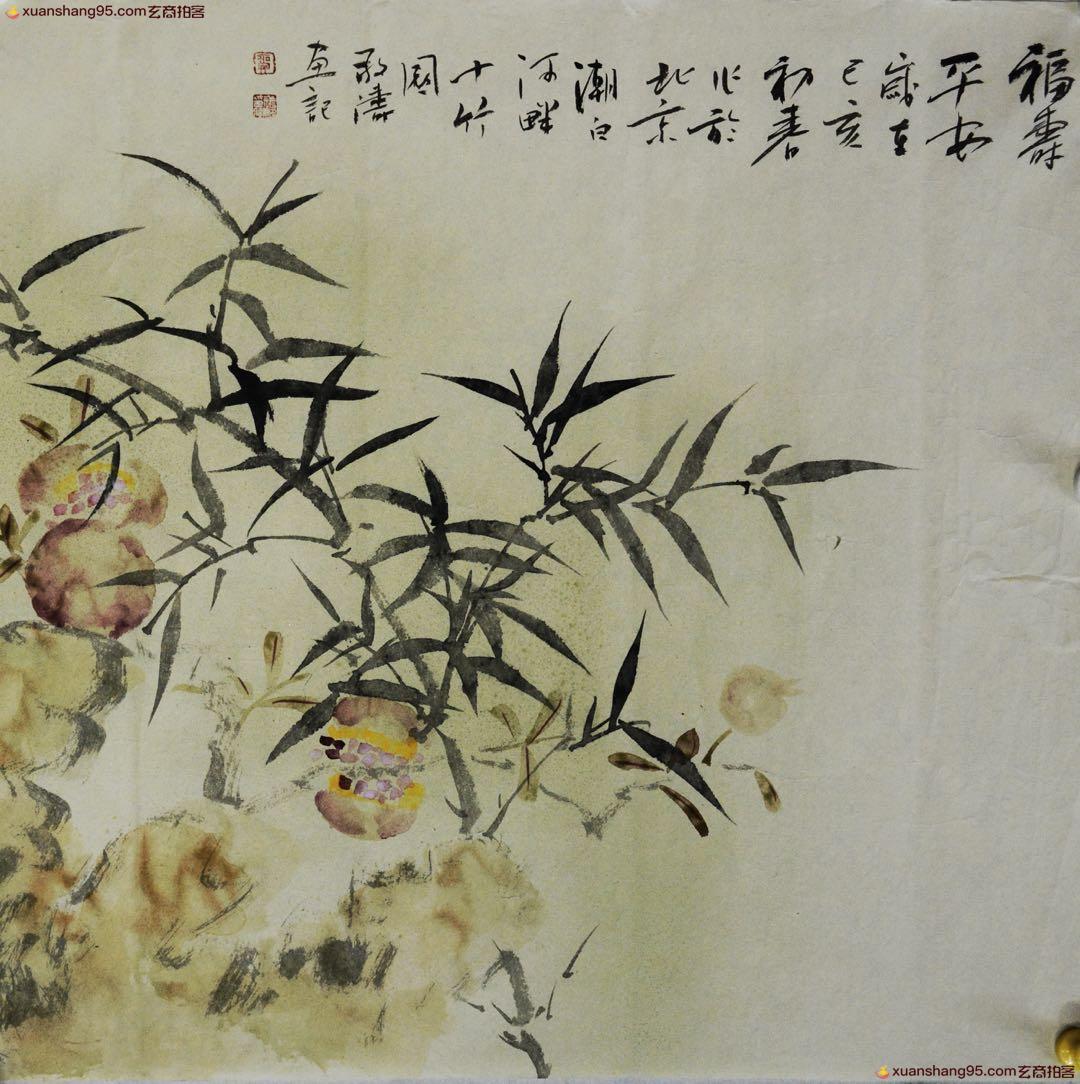 xuanshang95.com玄商拍客
福壽
平安
歲在
己亥
初春
作於
北京
潮白
河畔
十竹
園
敬濤
画記
xuanshang95.com玄商拍客